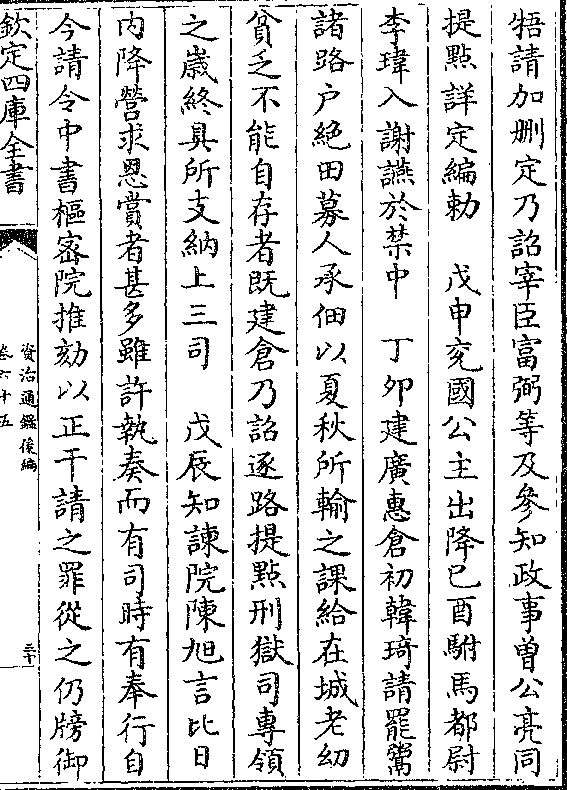 牾請加刪定乃詔宰臣富弼等及參知政事曾公亮同
提點詳定編勅　戊申兖國公主出降己酉駙馬都尉
李瑋入謝讌於禁中　丁卯建廣惠倉初韓琦請罷鬻
諸路户絶田募人承佃以夏秋所輸之課給在城老幼
貧乏不能自存者既建倉乃詔逐路提點刑獄司專領
之歲終具所支納上三司　戊辰知諫院陳旭言比日
内降營求恩賞者甚多雖許執奏而有司時有奉行自
今請令中書樞宻院推劾以正干請之罪從之仍牓御
欽定四庫全書
資治通鑑後編
卷六十五
二十